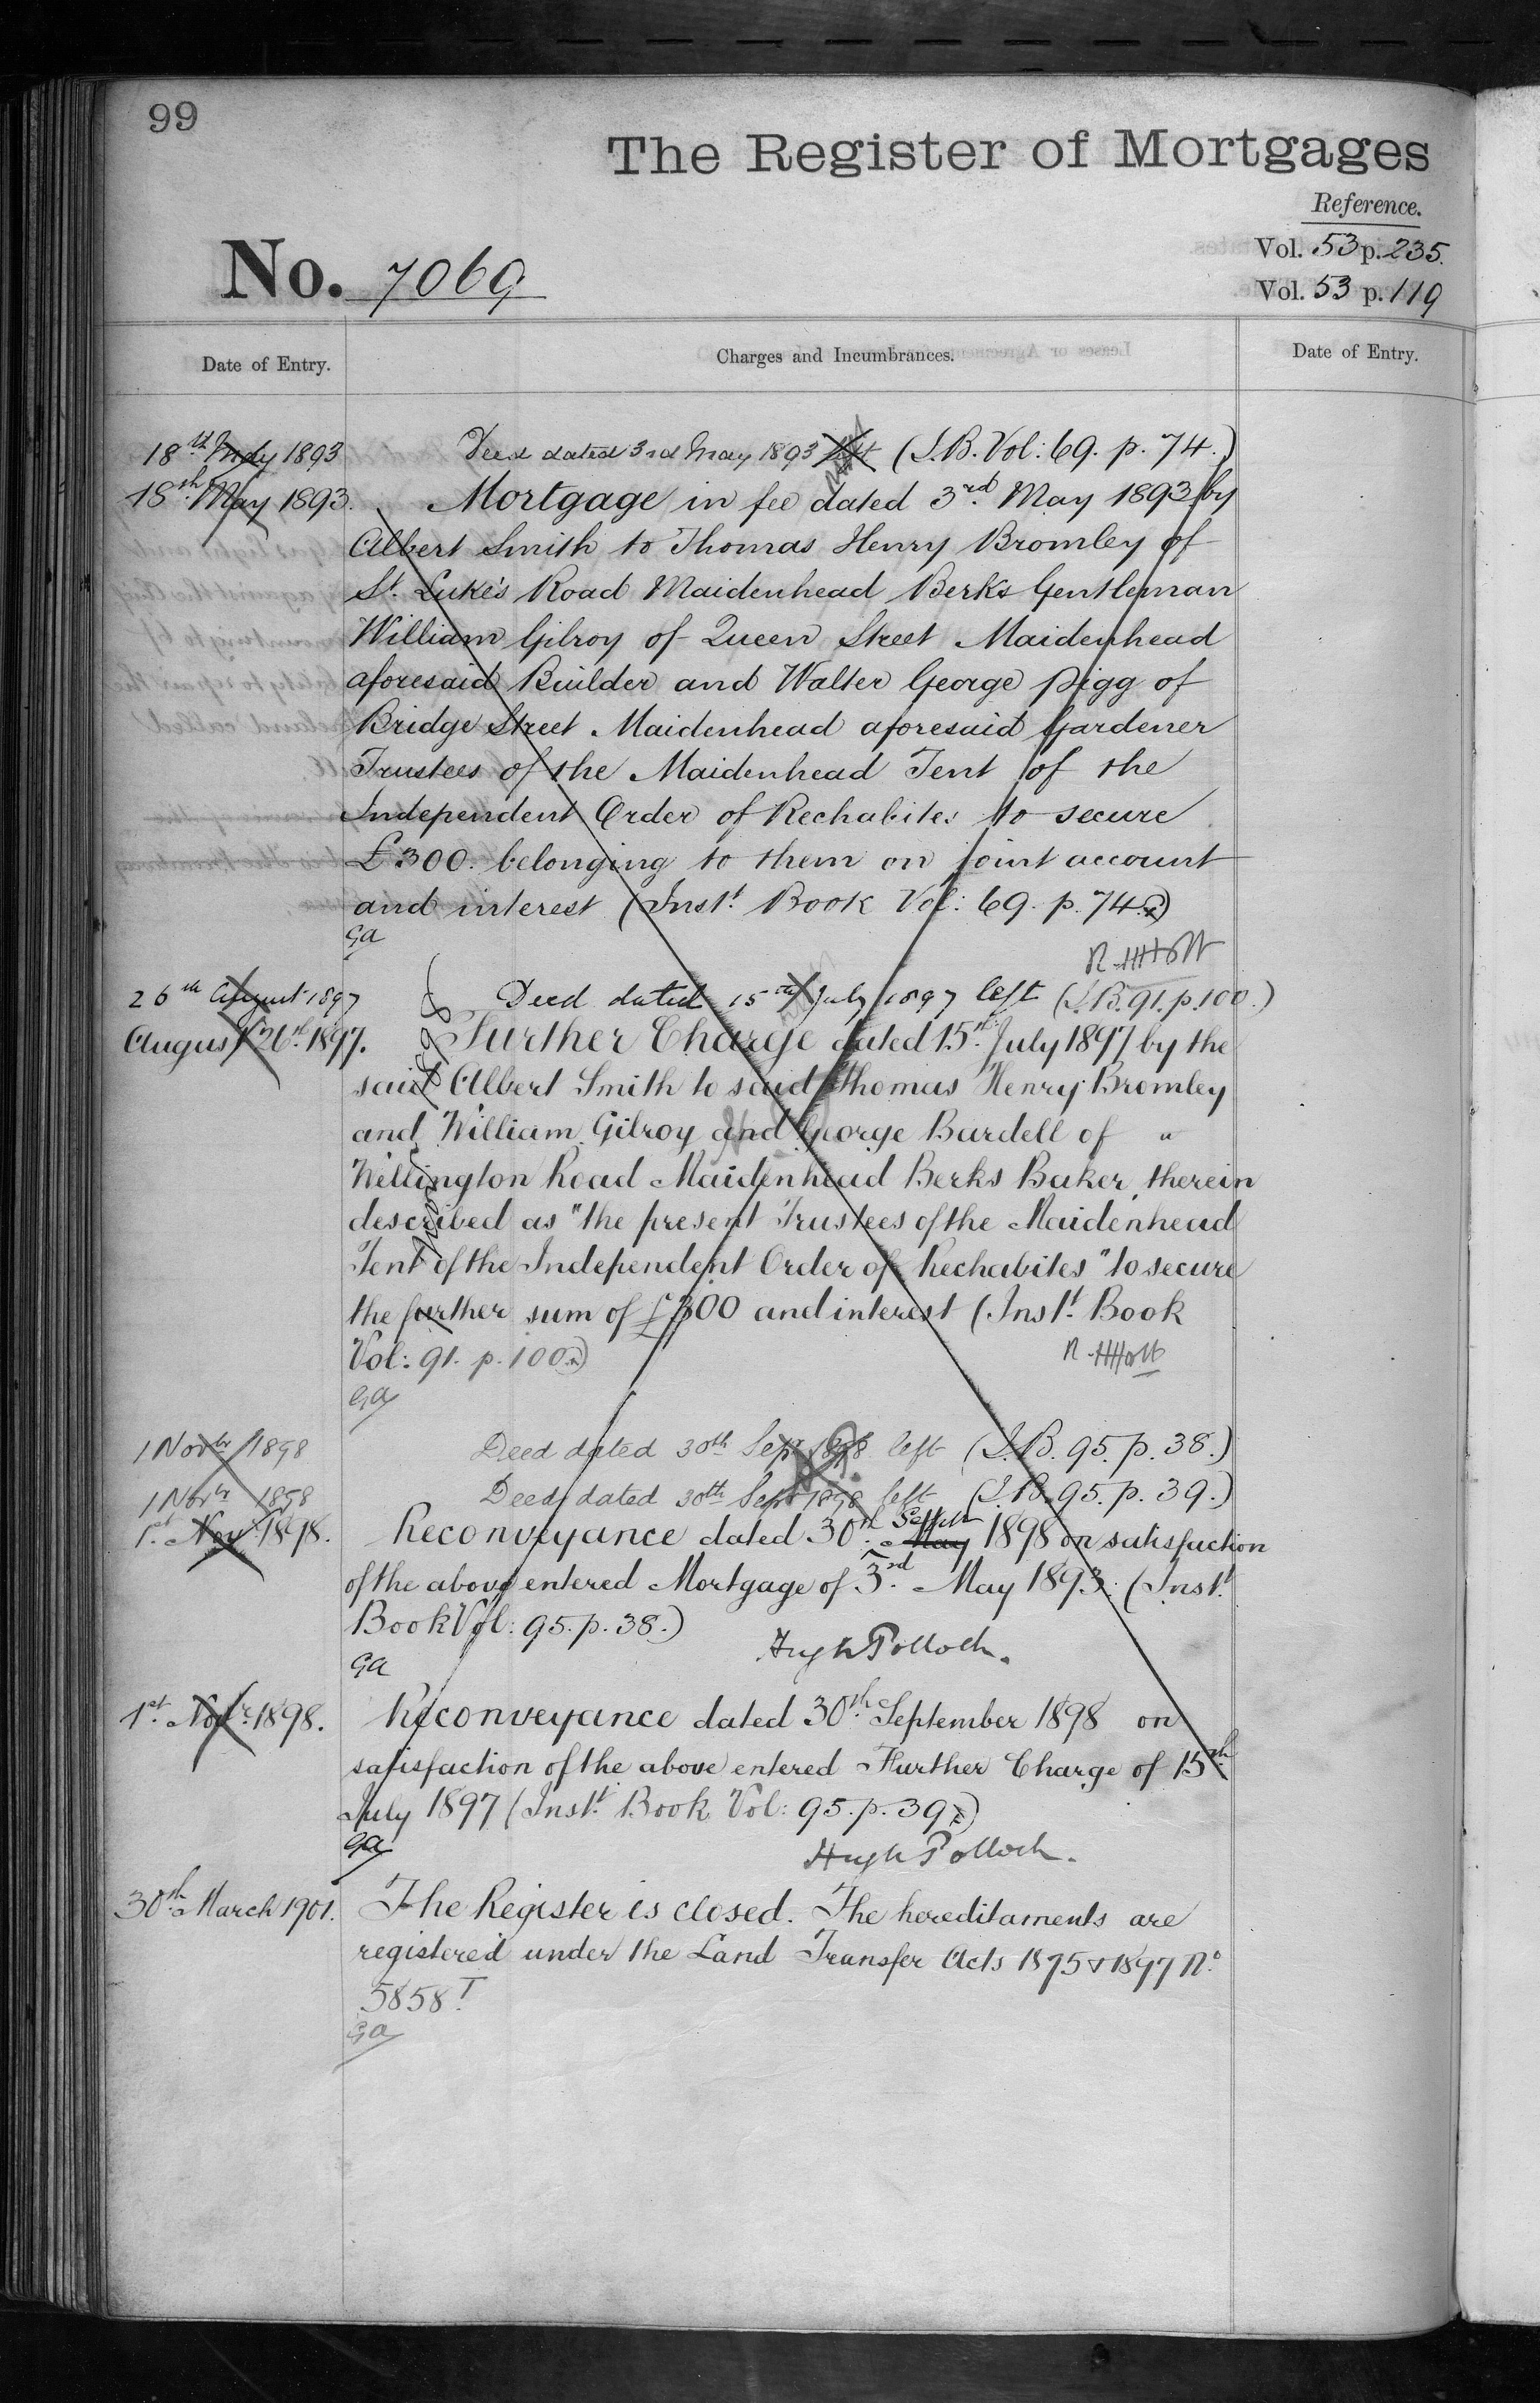 99
The Register of Mortgages
Reference.
No. 7069
Vol. 53 p. 235.
Vol. 53 p. 119
Date of Entry.
Charges and Incumbrances.
Date of Entry.
18th May 1893 Deed dated 3rd May 1893 left (I.B. Vol: 69. p. 74.)
18th May 1893. Mortgage in fee dated 3rd May 1893 by
Albert Smith to Thomas Henry Bromley of
St. Luke's Road Maidenhead Berks Gentleman
William Gilroy of Queen Street Maidenhead
aforesaid Builder and Walter George Pigg of
Bridge Street Maidenhead aforesaid Gardener
Trustees of the Maidenhead Tent of the
Independent Order of Rechabites to secure
£300. belonging to them on joint account
and interest (Inst. Book Vol: 69. p. 74.)
GA
26th August 1897 Deed dated 15th July 1897 left (I.B. 91. p. 100.)
August 26th 1897. Further Charge dated 15th July 1897 by the
said Albert Smith to said Thomas Henry Bromley
and William Gilroy and George Bardell of "
Wellington Road Maidenhead Berks Baker, therein
described as "the present Trustees of the Maidenhead
Tent of the Independent Order of Rechabites" to secure
the further sum of £300 and interest (Inst. Book
Vol: 91. p. 100.)
GA
1 Novbr 1898 Deed dated 30th Sept 1898 left (I.B. 95. p. 38.)
1 Novbr 1858 Deed dated 30th Sept 1898 left (I.B. 95. p. 39.)
1st Nov. 1898. Reconveyance dated 30th May Septr 1898 on satisfaction
of the above entered Mortgage of 3rd May 1893. (Inst.
Book Vol: 95. p. 38.)
Hugh Pollock.
GA
1st Novr. 1898. Reconveyance dated 30th September 1898 on
satisfaction of the above entered Further Charge of 15th
July 1897 (Inst. Book Vol: 95. p. 39.)
GA
Hugh Pollock.
30th March 1901. The Register is closed. The hereditaments are
registered under the Land Transfer Acts 1875 & 1897 No.
5858T
GA